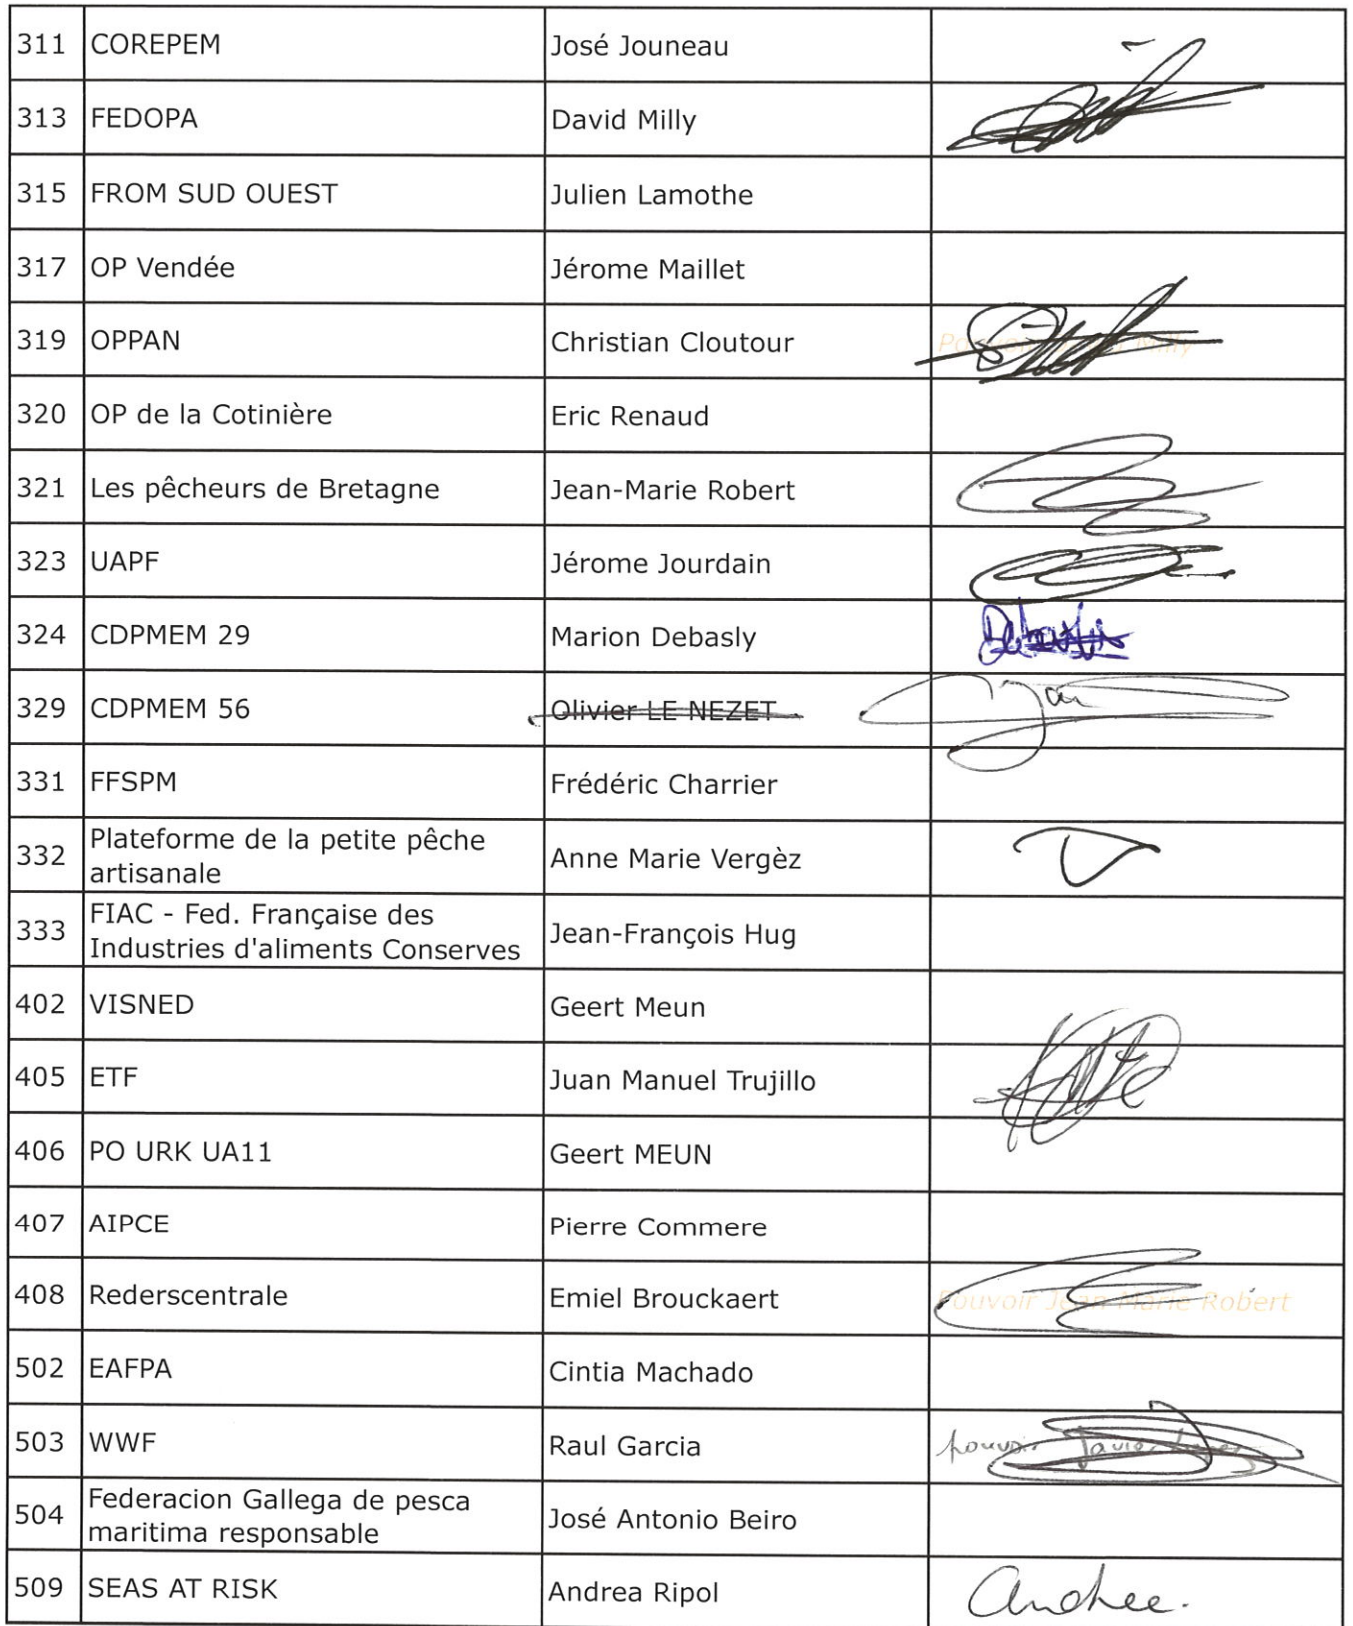 311 COREPEM José Jouneau
313 FEDOPA David Milly
315 FROM SUD OUEST Julien Lamothe
317 OP Vendée Jérome Maillet
319 OPPAN Christian Cloutour Pouvoir Milly
320 OP de la Cotinière Eric Renaud
321 Les pêcheurs de Bretagne Jean-Marie Robert
323 UAPF Jérome Jourdain
324 CDPMEM 29 Marion Debasly
329 CDPMEM 56 Olivier LE NEZET
331 FFSPM Frédéric Charrier
332 Plateforme de la petite pêche
artisanale Anne Marie Vergèz
333 FIAC - Fed. Française des
Industries d'aliments Conserves Jean-François Hug
402 VISNED Geert Meun
405 ETF Juan Manuel Trujillo
406 PO URK UA11 Geert MEUN
407 AIPCE Pierre Commere
408 Rederscentrale Emiel Brouckaert Pouvoir Jean Marie Robert
502 EAFPA Cintia Machado
503 WWF Raul Garcia pouvoir Javier
504 Federacion Gallega de pesca
maritima responsable José Antonio Beiro
509 SEAS AT RISK Andrea Ripol